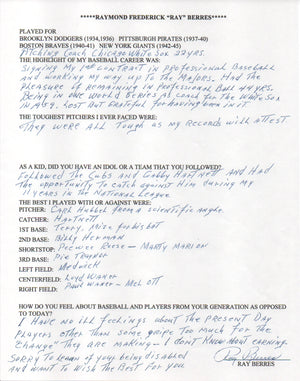 *****RAYMOND FREDERICK "RAY" BERRES*****
PLAYED FOR
BROOKLYN DODGERS (1934,1936) PITTSBURGH PIRATES (1937-40)
BOSTON BRAVES (1940-41) NEW YORK GIANTS (1942-45)
Pitching Coach Chicago White Sox 22 yrs.
THE HIGHLIGHT OF MY BASEBALL CAREER WAS:
Signing my 1st contract in Professional Baseball
and working my way up to the Majors. Had the
pleasure of remaining in Professional Ball 44 yrs.
Being in one World Series as Coach for the White Sox
in 1959. Lost But Grateful for having been in it.
THE TOUGHEST PITCHERS I EVER FACED WERE:
They were all Tough as my Records will attest
AS A KID, DID YOU HAVE AN IDOL OR A TEAM THAT YOU FOLLOWED?
Followed The Cubs and Gabby Hartnett and Had
the opportunity to catch against Him during my
11 years in the National League.
THE BEST I PLAYED WITH OR AGAINST WERE:
PITCHER: Carl Hubbel from a scientific angle.
CATCHER: Hartnett
1ST BASE: Terry,
2ND BASE: Billy Herman
SHORTSTOP: Peewee Reese - Marty Marion
3RD BASE: Pie Traynor
LEFT FIELD: Medwick
CENTERFIELD: Lloyd Waner
RIGHT FIELD: Paul Waner - Mel Ott
HOW DO YOU FEEL ABOUT BASEBALL AND PLAYERS FROM YOUR GENERATION AS OPPOSED
TO TODAY?
I Have no ill feelings about the Present Day
Players other than some gripe Too much for the
"change" They are making - I don't Know about earning.
Sorry To learn of your being disabled
and want to Wish The Best For you
Ray Berres
RAY BERRES